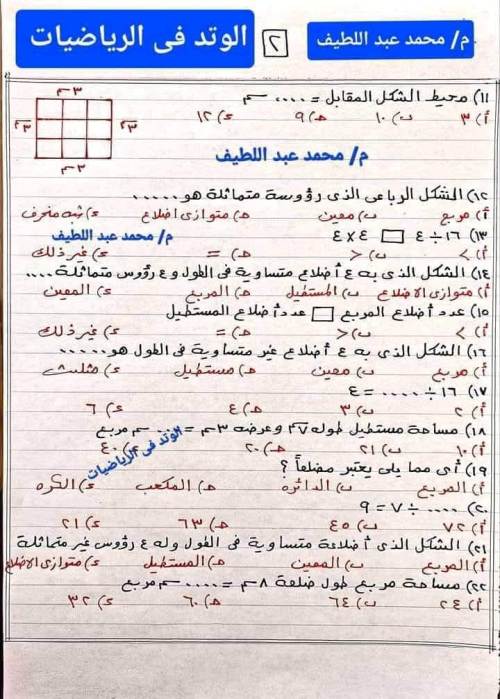 م/ محمد عبد اللطيف ٢ الوتد فى الرياضيات
١١) محيط الشكل المقابل = .... سم
أ) ٣ ب) ١٠ هـ) ٩ ء) ١٢
٣سم
٣سم ٣سم
٣سم
م/ محمد عبد اللطيف
١٢) الشكل الرباعى الذى رؤوسة متماثلة هو .....
أ) مربع ب) معين هـ) متوازى اضلاع ء) شبه منحرف
١٣) ١٦ ÷ ٤ □ ٤ × ٤ م/ محمد عبد اللطيف
أ) > ب) < هـ) = ء) غير ذلك
١٤) الشكل الذى به ٤ أضلاع متساوية فى الطول و ٤ رؤوس متماثلة ....
أ) متوازى الاضلاع ب) المستطيل هـ) المربع ء) المعين
١٥) عدد أضلاع المربع □ عدد أضلاع المستطيل
أ) > ب) < هـ) = ء) غير ذلك
١٦) الشكل الذى به ٤ أضلاع غير متساوية فى الطول هو .....
أ) مربع ب) معين هـ) مستطيل ء) مثلث
١٧) ١٦ ÷ .... = ٤
أ) ٢ ب) ٣ هـ) ٤ ء) ٦
١٨) مساحة مستطيل طوله ٧سم وعرضه ٣سم = .... سم مربع
أ) ١٠ ب) ٢١ هـ) ٢٠ ء) ٤٠
الوتد فى الرياضيات
١٩) أى مما يلى يعتبر مضلعاً ؟
أ) المربع ب) الدائره هـ) المكعب ء) الكره
٢٠) .... ÷ ٧ = ٩
أ) ٧٢ ب) ٤٥ هـ) ٦٣ ء) ٢١
٢١) الشكل الذى أضلاعة متساوية فى الطول وله ٤ رؤوس غير متماثلة
أ) المربع ب) المعين هـ) المستطيل ء) متوازى الاضلاع
٢٢) مساحة مربع طول ضلعة ٨سم = .... سم مربع
أ) ٢٤ ب) ٦٤ هـ) ٦٠ ء) ٣٢